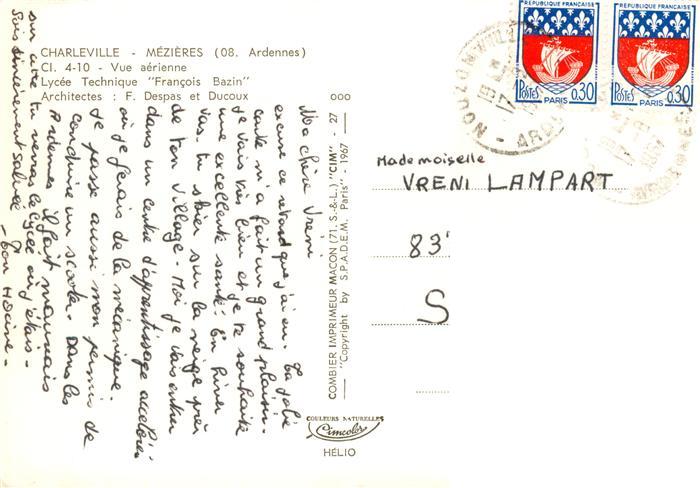 CHARLEVILLE - MÉZIÈRES (08. Ardennes)
CI. 4-10 - Vue aérienne
Lycée Technique "François Bazin"
Architectes : F. Despas et Ducoux
000
Ma chère Vreni
excuse ce retard que j'ai eu. Ta jolie
carte m'a fait un grand plaisir.
Je vais très bien et je te souhaite
une excellente santé. En hiver
vas-tu skier sur la neige près
de ton village - Moi je vais entrer
dans un centre d'apprentissage accéléré
où je ferais de la mécanique.
Je passe aussi mon permis de
conduire un scooter. Dans les
Ardennes il fait mauvais
sur cette tu verras le lycée où j'étais -
Sois sincèrement saluée
- ton
COMBIER IMPRIMEUR MACON (71. S.-&-L.) "CIM" - 27
"Copyright by S.P.A.D.E.M. Paris" - 1967
COULEURS NATURELLES
Cimcolor
HÉLIO
REPUBLIQUE FRANÇAISE
POSTES 0,30
PARIS
REPUBLIQUE FRANÇAISE
POSTES 0,30
PARIS
NOUZON
ARD
Mademoiselle
VRENI LAMPART
83'
S